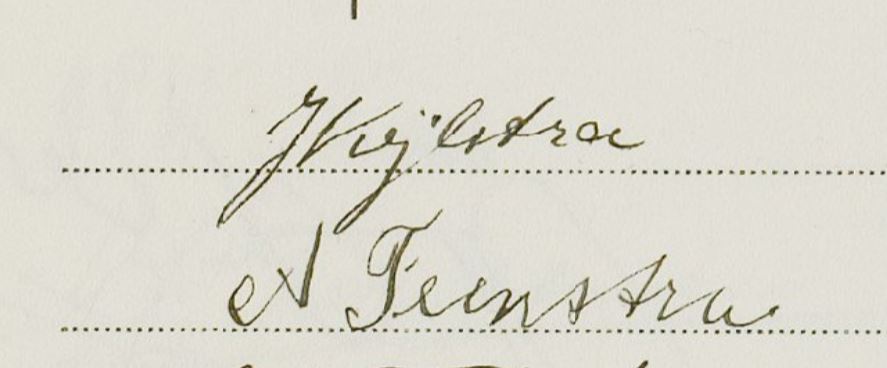 J Kijlstra
A Feenstra